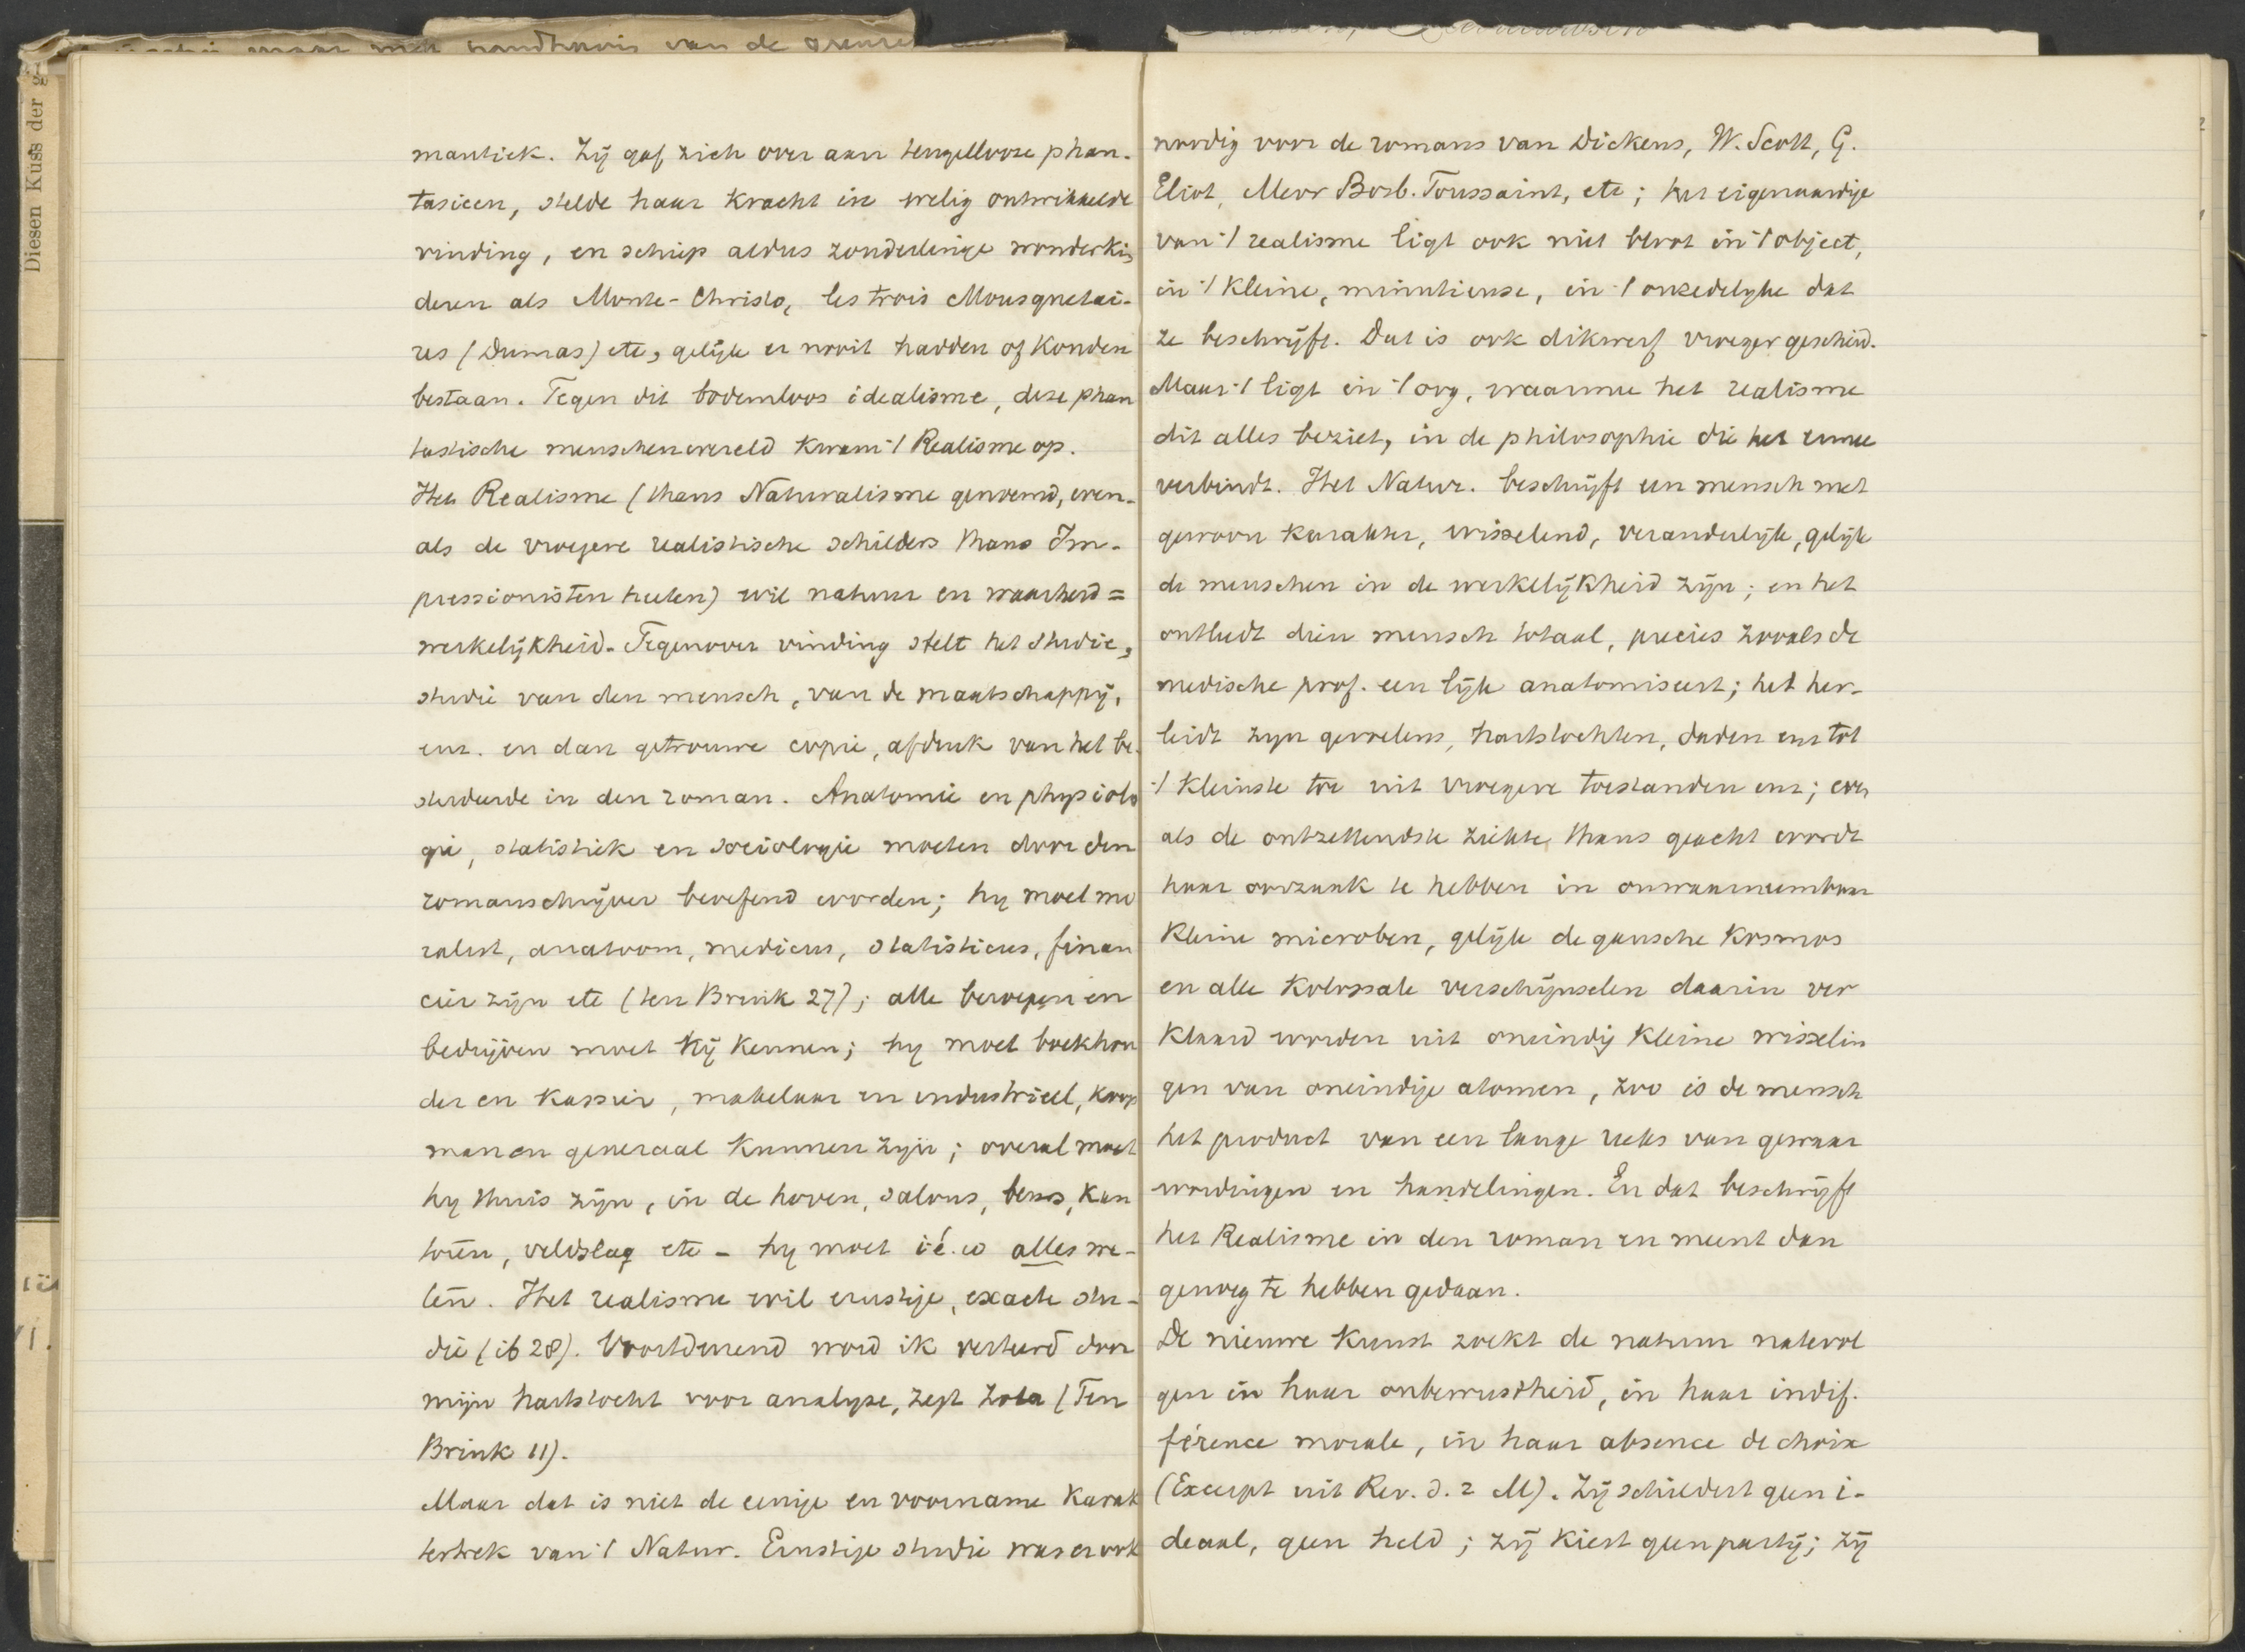 handhavis van de grenzen
Diesen Kuss der g
mantiek. Zij gaf zich over aan tengellooze phan-
tasieen, stelde haar kracht in welig ontwikkelde
vinding, en schiep aldus zonderlinge wonderkin
deren als Monte-Christo, les trois Mousquetai-
res (Dumas) etc, gelijk er nooit hadden of konden
bestaan. Tegen dit bodemloos idealisme, deze phan
tastische menschenwereld kwam 't Realisme op.
Het Realisme (thans Naturalisme genoemd, even-
als de vroegere realistische schilders thans Im-
pressionisten heeten) wil natuur en waarheid =
werkelijkheid. Tegenover vinding stelt het studie,
studie van den mensch, van de maatschappij,
enz. en dan getrouwe copie, afdruk van het be-
studeerde in den roman. Anatomie en physiolo
gie, statistiek en sociologie moeten door den
romanschrijver beoefend worden; hy moet mo
ralist, anatoom, medicus, statisticus, finan
cier zijn etc (ten Brink 27); alle beroepen en
bedrijven moet hij kennen; hy moet boekhou
der en kassier, makelaar en industrieel, koop
man en generaal kunnen zijn; overal moet
hy thuis zijn, in de hoven, salons, beurs, kan
toren, veldslag etc - hy moet i. é. w alles we-
ten. Het realisme wil ernstige, exacte stu-
die (ib 28). Voortdurend word ik verteerd door
mijn hartstocht voor analyse, zegt Zola (Ten
Brink 11).
Maar dat is niet de eenige en voorname karak
tertrek van 't Natur. Ernstige studie was er ook
noodig voor de romans van Dickens, W. Scott, G.
Eliot, Mevr Bosb. Toussaint, etc; het eigenaardige
van 't realisme ligt ook niet bloot in 't object,
in 't kleine, minutieuse, in 't onzedelyke dat
ze beschrijft. Dat is ook dikwerf vroeger geschied.
Maar 't ligt in 't oog, waarmee het realisme
dit alles beziet, in de philosophie die het ermee
verbindt. Het Natur. beschrijft een mensch met
gewoon karakter, wisselend, veranderlijk, gelijk
de menschen in de werkelijkheid zijn; en het
ontleedt dien mensch totaal, precies zooals de
medische prof. een lijk anatomiseert; het her-
leidt zyn gevoelens, hartstochten, daden enz tot
't kleinste toe uit vroegere toestanden enz; even
als de ontzettendste ziekte thans geacht wordt
haar oorzaak te hebben in onwaarneembaar
kleine microben, gelijk de gansche kosmos
en alle kolossale verschijnselen daarin ver
klaard worden uit oneindig kleine wisselin
gen van oneindige atomen, zoo is de mensch
het product van een lange reeks van gewaar
wordingen en handelingen. En dat beschrijft
het Realisme in den roman en meent dan
genoeg te hebben gedaan.
De nieuwe kunst zoekt de natuur natevol
gen in haar onbewustheid, in haar indif-
férence morale, in haar absence de choix
(Excerpt uit Rev. d. 2 M). Zij schildert geen i-
deaal, geen held; zij kiest geen partij; zij